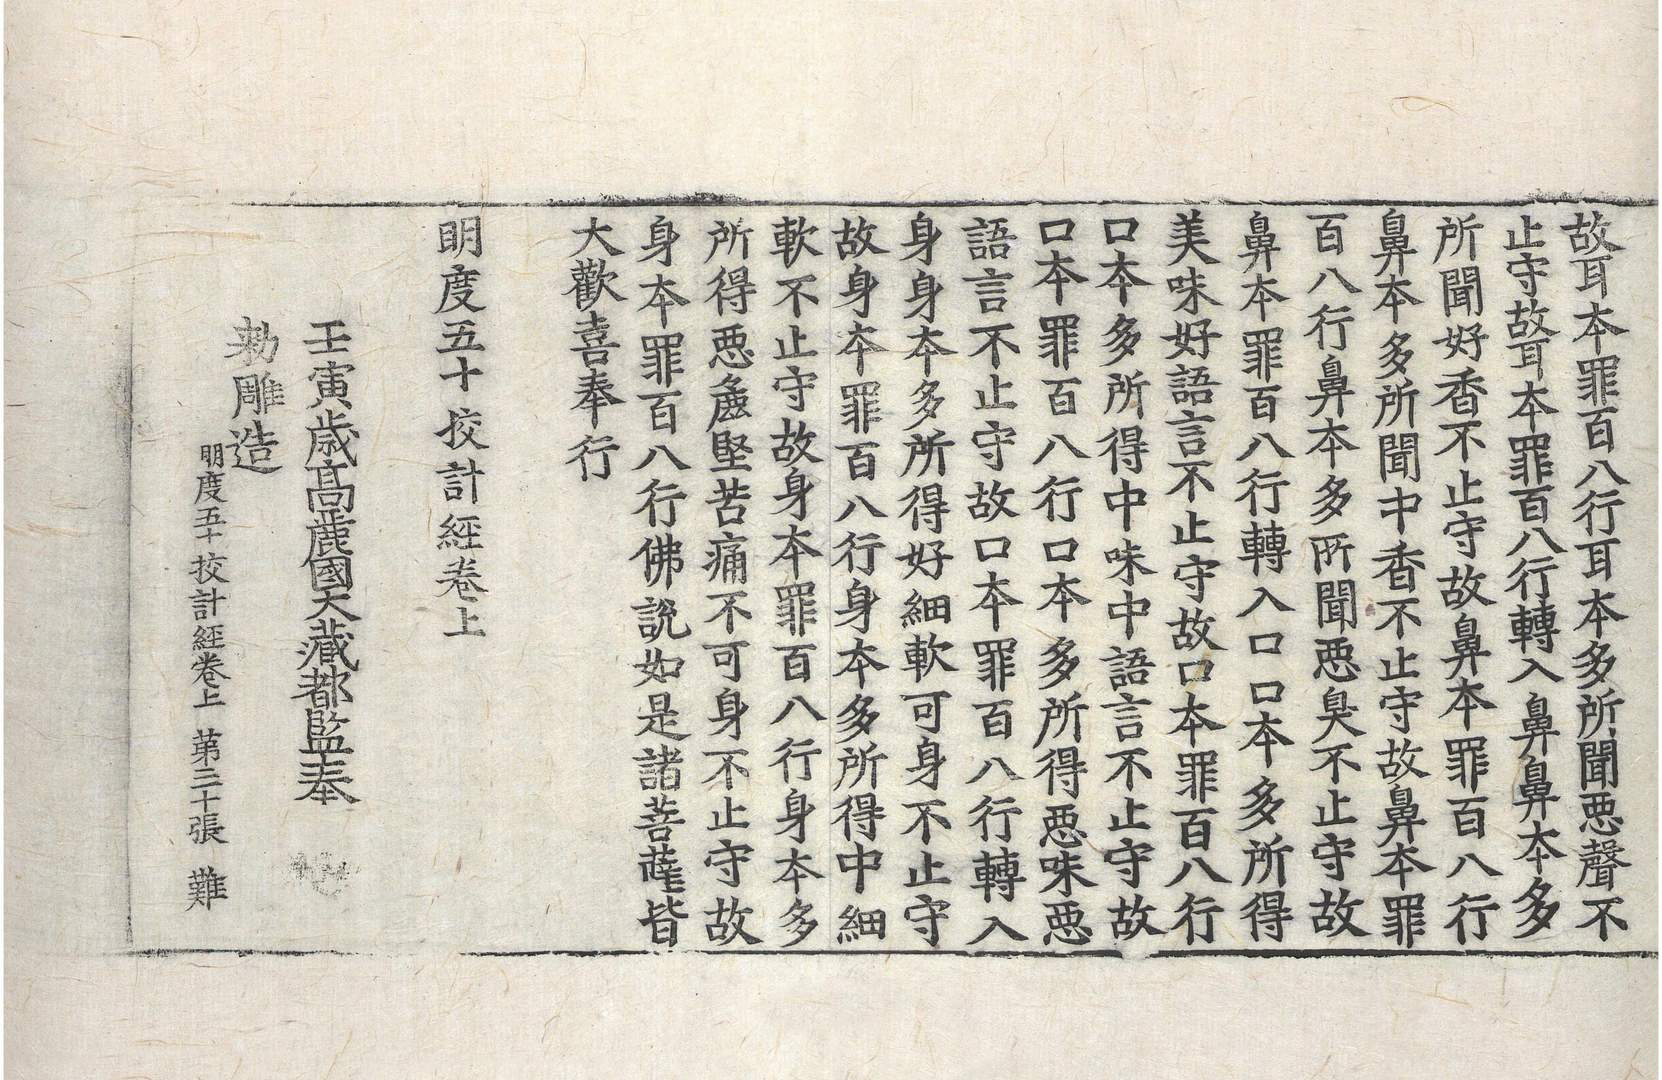 故耳本罪百八行耳本多所聞惡聲不
止守故耳本罪百八行轉入鼻鼻本多
所聞好香不止守故鼻本罪百八行
鼻本多所聞中香不止守故鼻本罪
百八行鼻本多所聞惡臭不止守故
鼻本罪百八行轉入口口本多所得
美味好語言不止守故口本罪百八行
口本多所得中味中語言不止守故
口本罪百八行口本多所得惡味惡
語言不止守故口本罪百八行轉入
身身本多所得好細軟可身不止守
故身本罪百八行身本多所得中細
軟不止守故身本罪百八行身本多
所得惡麁堅苦痛不可身不止守故
身本罪百八行佛說如是諸菩薩皆
大歡喜奉行
明度五十挍計經卷上
壬寅歲高麗國大藏都監奉
勅雕造
明度五十挍計經卷上 第三十張 難